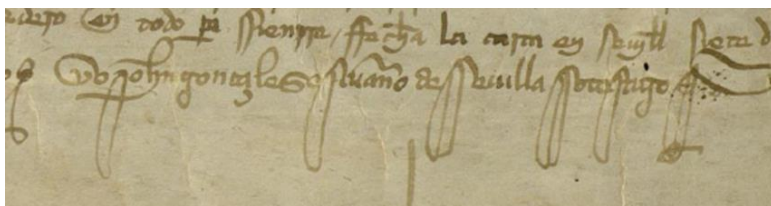 en todo pa sienpre ffecha la carta en seujll siete d
yo john gonçales escriuano de sseuilla sso testigo